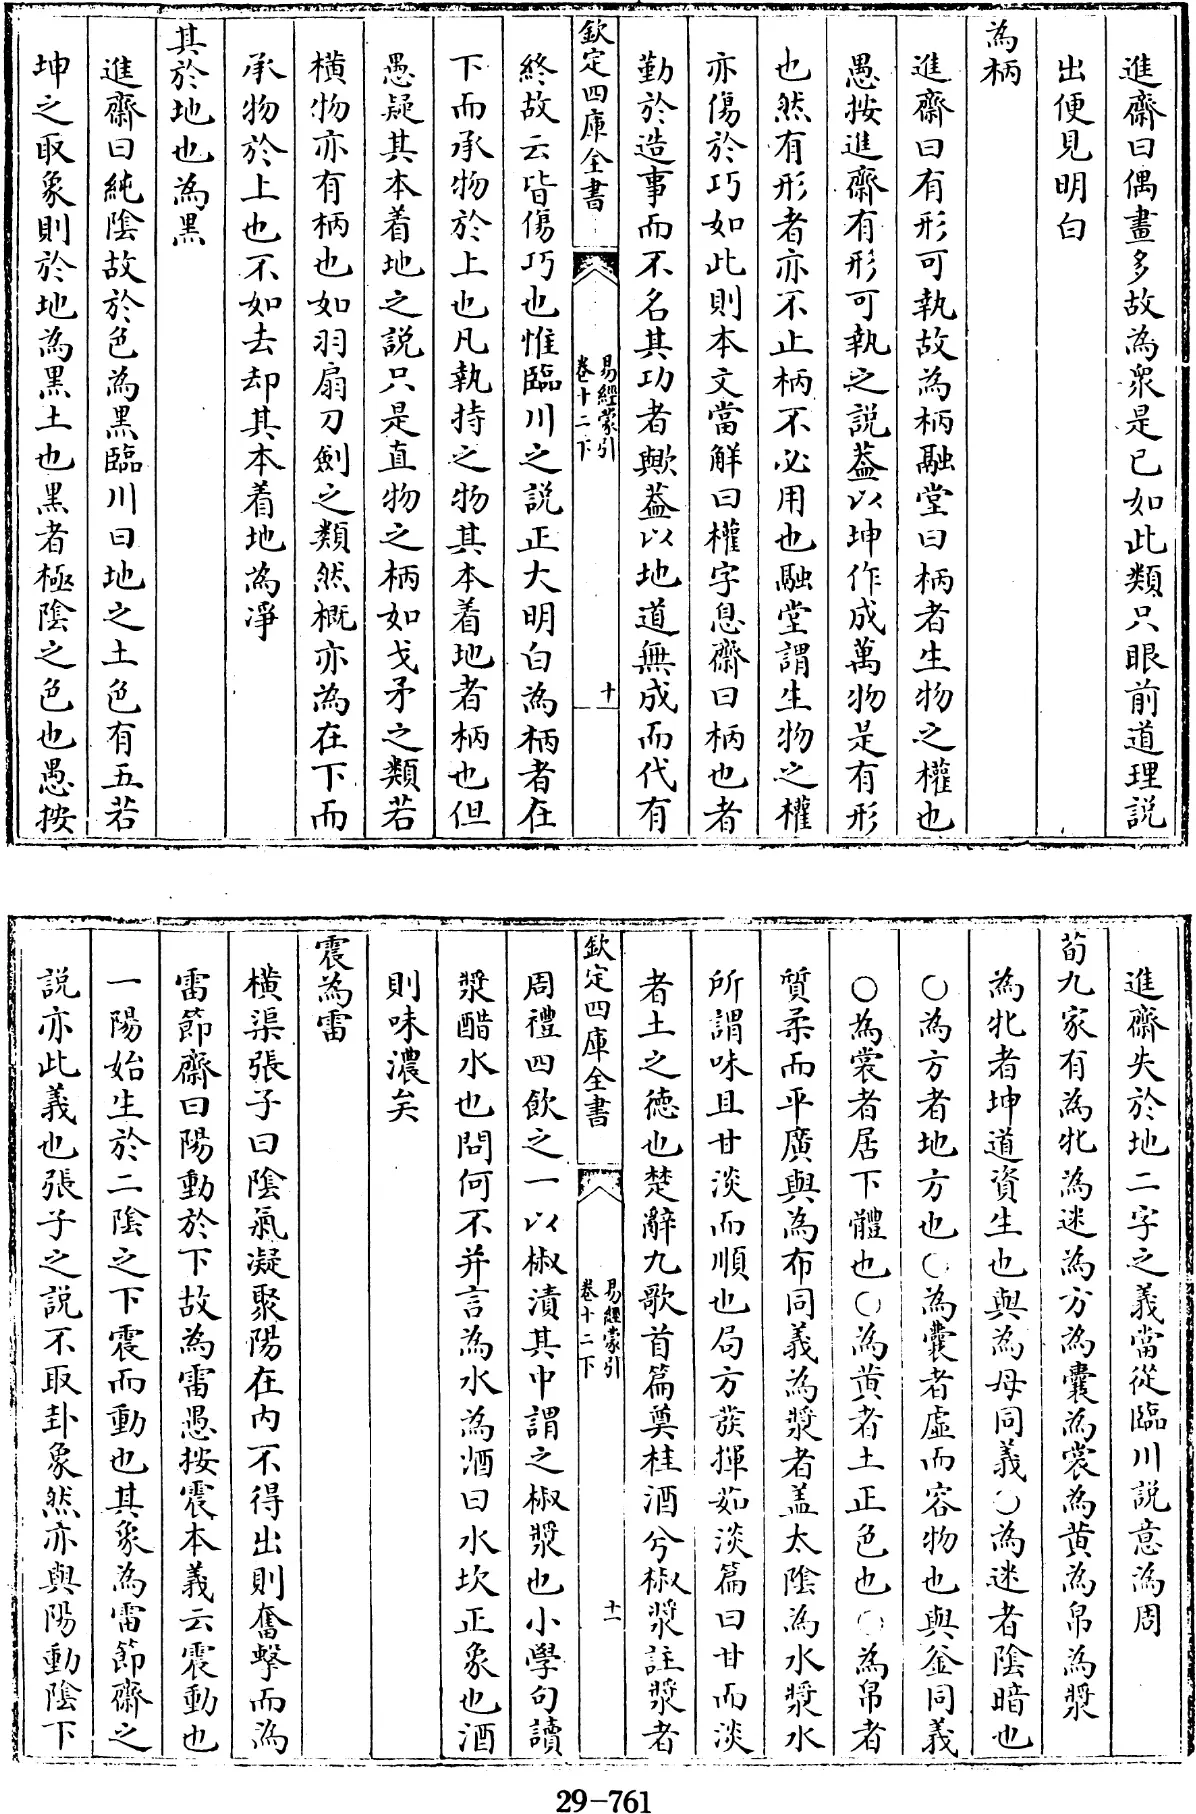 進齋曰偶畫多故為衆是已如此類只眼前道理説
出便見明白
為柄
進齋曰有形可執故為柄融堂曰柄者生物之權也
愚按進齋有形可執之説葢以坤作成萬物是有形
也然有形者亦不止柄不必用也融堂謂生物之權
亦傷於巧如此則本文當解曰權字息齋曰柄也者
勤於造事而不名其功者歟葢以地道無成而代有
欽定四庫全書
易經蒙引
卷十二下
十
終故云皆傷巧也惟臨川之説正大明白為柄者在
下而承物於上也凡執持之物其本着地者柄也但
愚疑其本着地之説只是直物之柄如戈矛之類若
横物亦有柄也如羽扇刀劍之類然概亦為在下而
承物於上也不如去却其本着地為淨
其於地也為黑
進齋曰純陰故於色為黑臨川曰地之土色有五若
坤之取象則於地為黒土也黒者極陰之色也愚按
進齋失於地二字之義當從臨川説意為周
荀九家有為牝為迷為方為囊為裳為黄為帛為漿
為牝者坤道資生也與為母同義○為迷者陰暗也
○為方者地方也○為囊者虛而容物也與釜同義
○為裳者居下體也○為黄者土正色也○為帛者
質柔而平廣與為布同義為漿者盖太陰為水漿水
所謂味且甘淡而順也局方發揮茹淡篇曰甘而淡
者土之徳也楚辭九歌首篇奠桂酒兮椒漿註漿者
欽定四庫全書
易經蒙引
卷十二下
十一
周禮四飲之一以椒漬其中謂之椒漿也小學句讀
漿醋水也問何不并言為水為酒曰水坎正象也酒
則味濃矣
震為雷
横渠張子曰陰氣凝聚陽在内不得出則奮擊而為
雷節齋曰陽動於下故為雷愚按震本義云震動也
一陽始生於二陰之下震而動也其象為雷節齋之
説亦此義也張子之説不取卦象然亦與陽動陰下
29-761